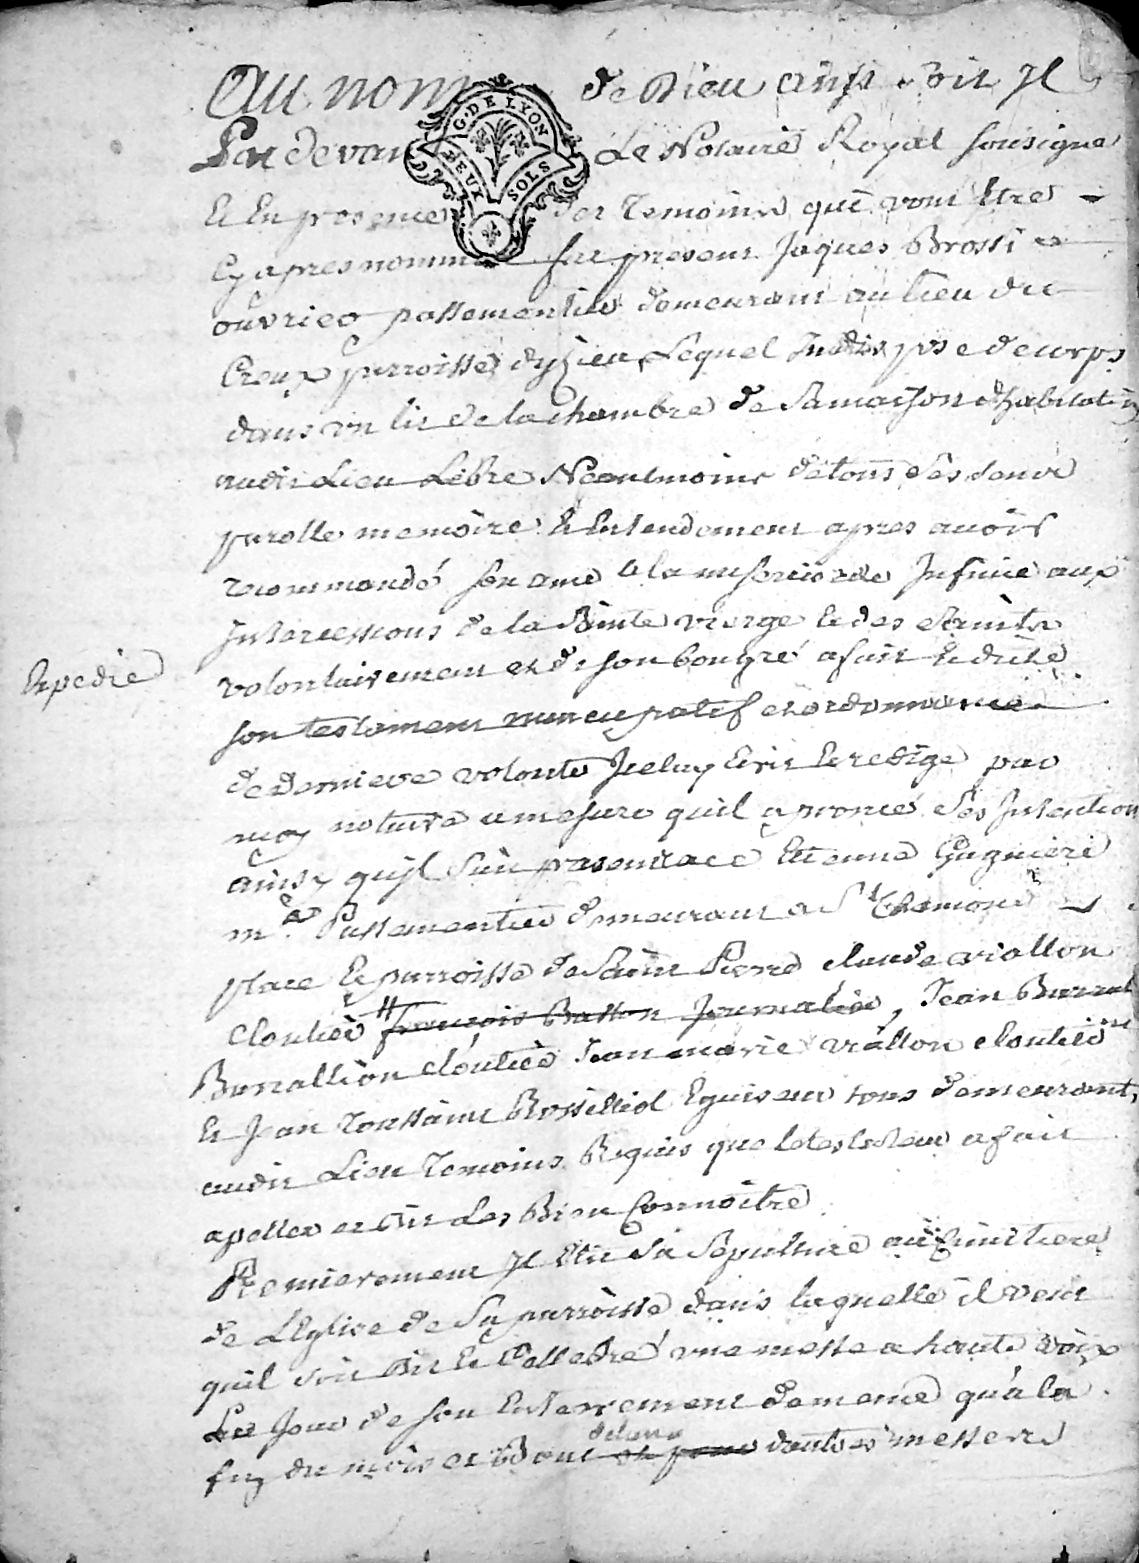 Au nom de Dieu ainsi soit Il
Par devant Le Notaire Royal sousigné
Et En presence des Temoins qui vont Etre
Cy apres nommé fut present Jaques Brossi
ouvrier passementier demeurant au lieu du
Creux parroisse dyzieu Lequel Indisposé de corps
dans un lit de la chambre de Sa maison d'habitation
audit Lieu Libre Neantmoins de tous Ses Sens
parolle memoire Et Entendement apres avoir
recommandé son ame a la misericorde Infinie aux
Intercessions de la Sainte vierge Et des Saints
volontairement et de son bon gré a fait Et dicté
Expedié
son testament nuncupatif et ordonnance
de Derniere volonté Iceluy Ecrit Et redigé par
moy notaire a mesure qu'il a prononcé Ses Intentions
ainsy qu'il Suit presence Etienne
mᵉ Passementier demeurant a St Chamond
place Et parroisse de Saint Pierre claude viallon
Cloutier # françois Basson Journalier, Jean
Burrallion cloutier Jean marie viallon cloutier
Et Jean Toussaint Egriseur tous demeurants
audit Lieu Temoins Requis que le testateur a fait
apeller et Dit Les Bien Connoitre
Premierement Il Elit Sa Sepulture au Cimitiere
de L'Eglise de Sa parroisse dans laquelle il veut
quil soit Dit Et Cellebré une messe a haute voix
Le Jour de son Enterrement de meme qu'a la
fin du mois et Bout de l'an d'autres messes